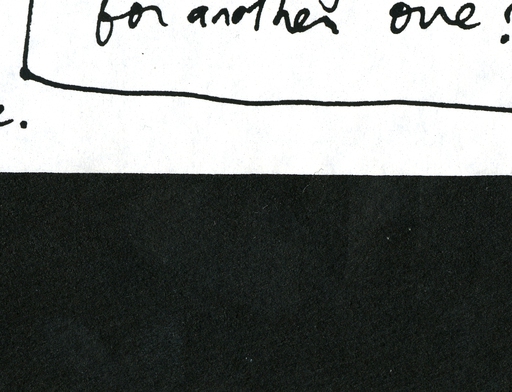 for another one?
e.